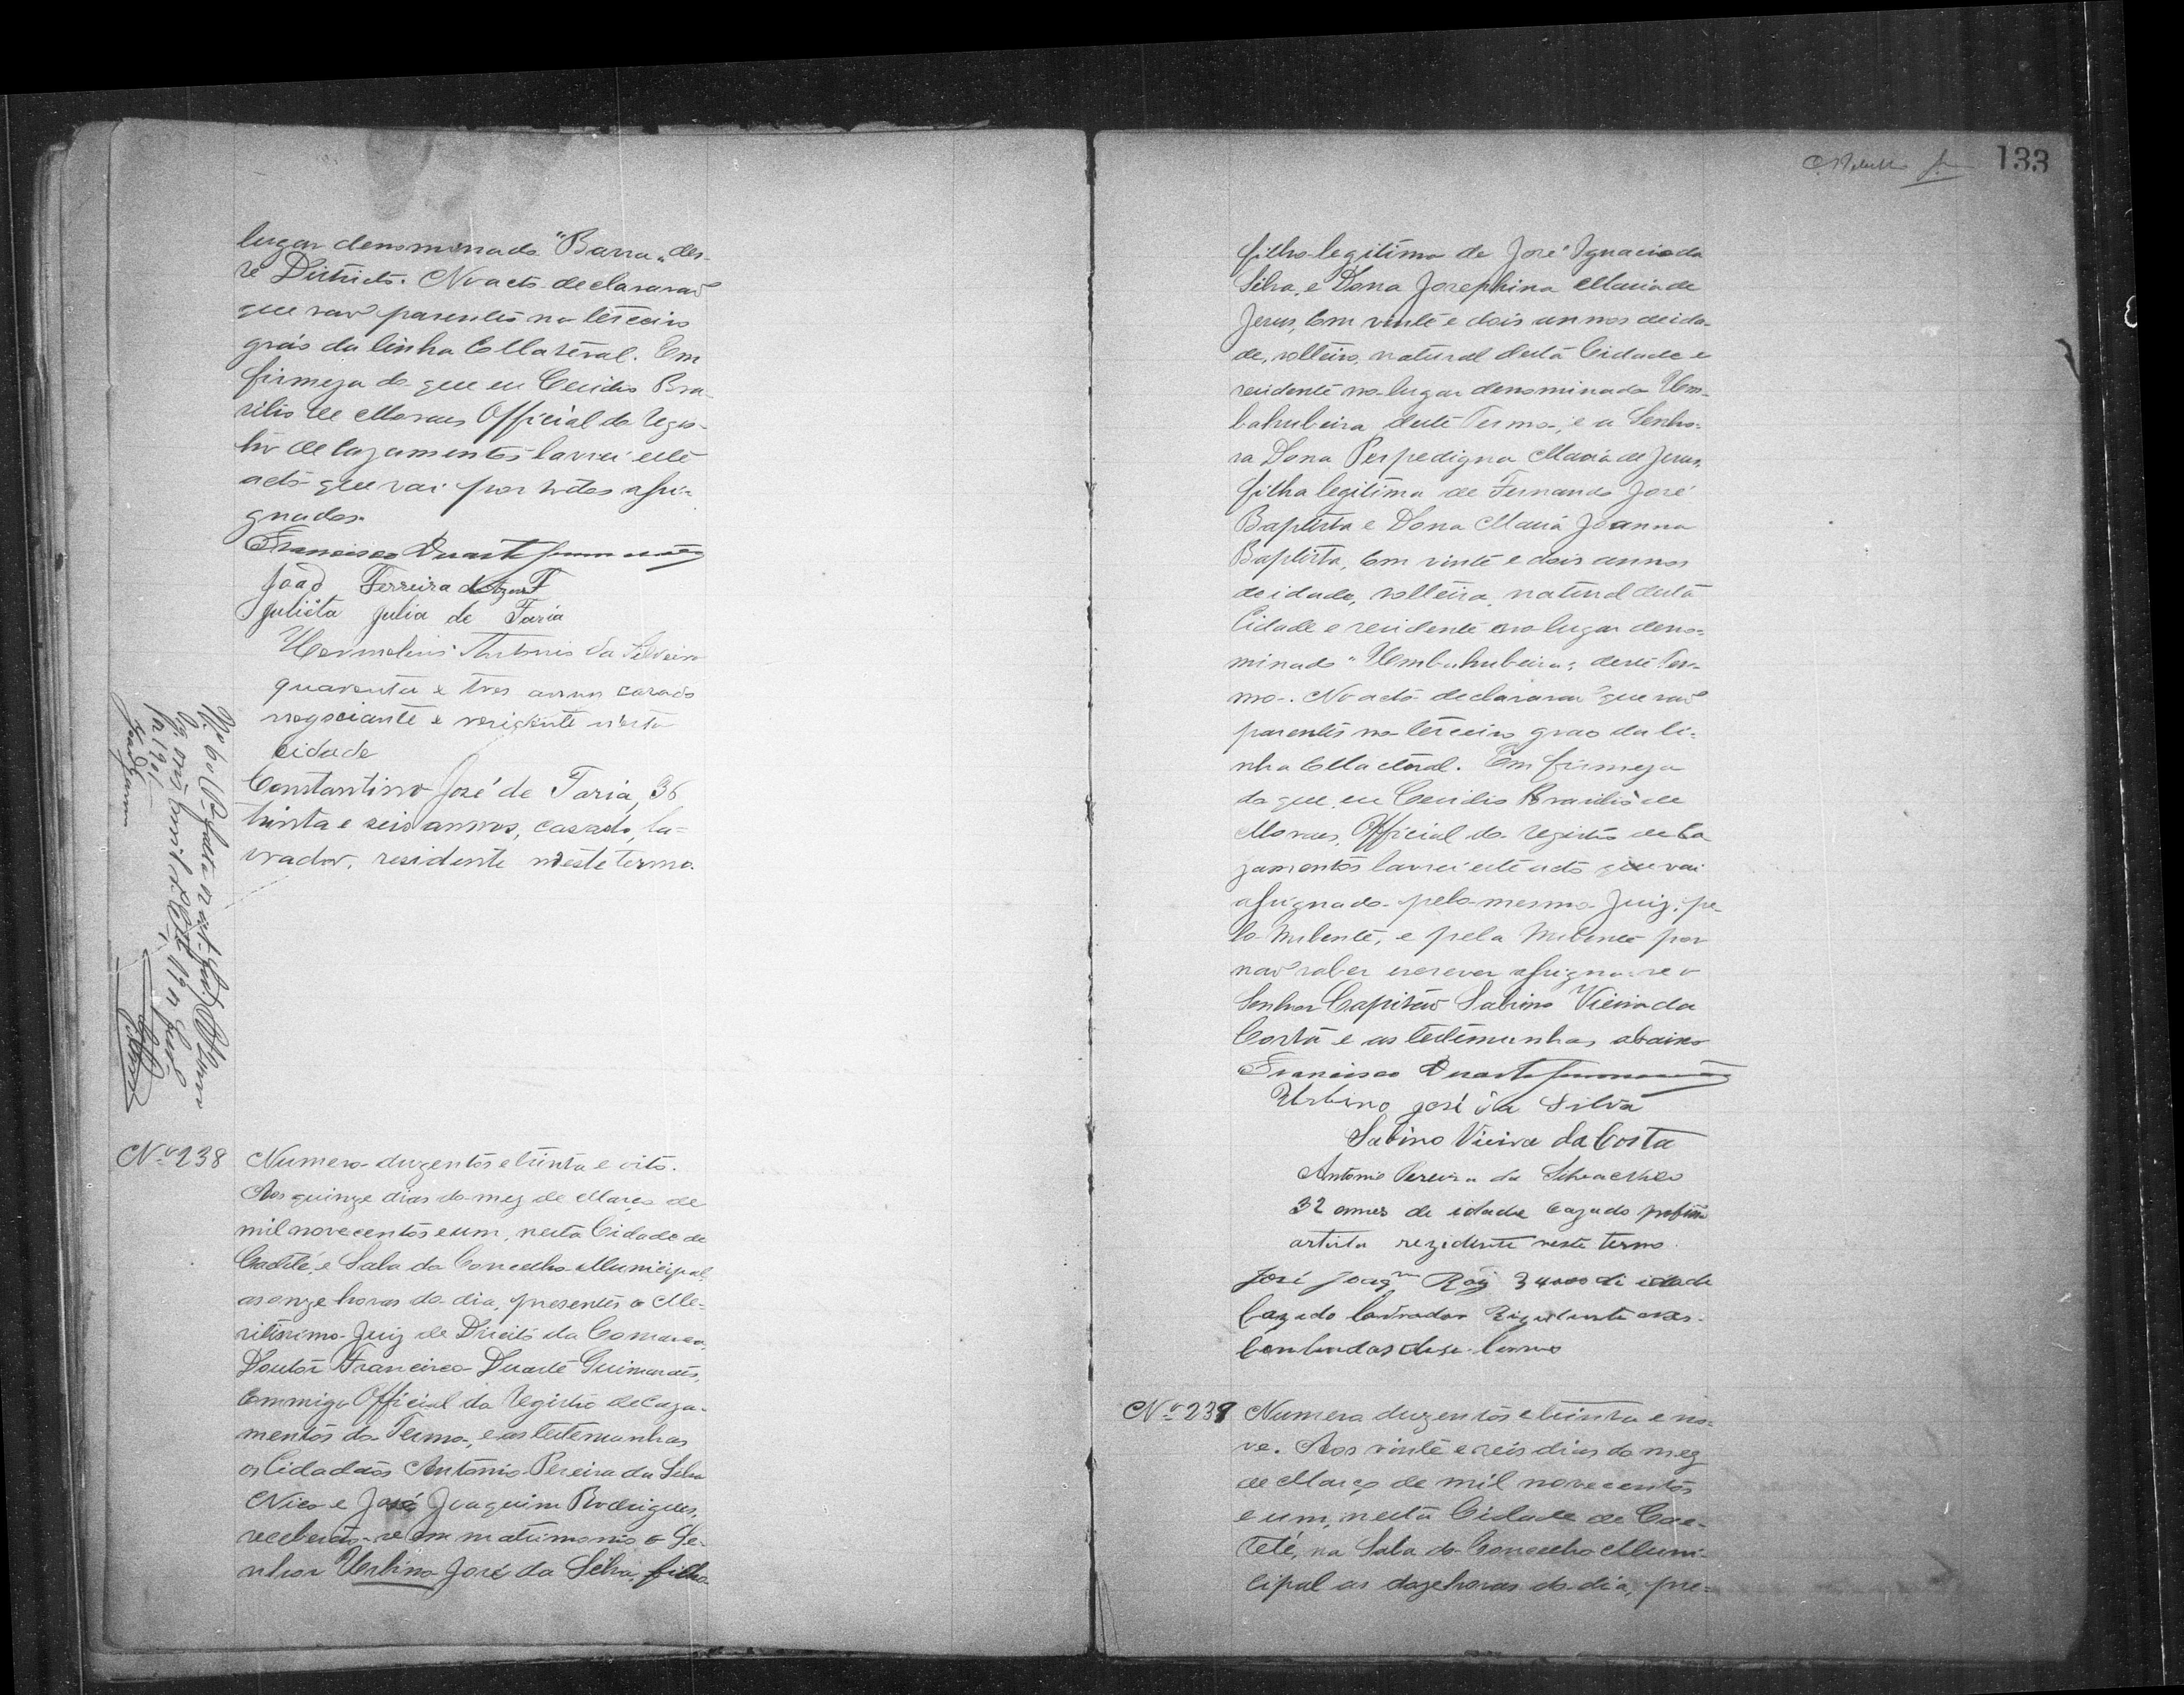 lugar denominado "Barra" des-
te Districto. No acto declararaõ
que saõ parentes no terceiro
gráo da linha Collateral. Em
firmeza do que eu Cenidio Bra-
silio de Moraes Official do Regis-
tro de Cazamentos lavrei este
acto que vai por todos assi-
gnados.
Francisco Duarte Guimarães
Joaõ Ferreira de
Julieta Julia de Faria
Antonio da Silveira
quarenta e tres annos casado
negociante e residente nesta
cidade
Constantino José de Faria, 36
trinta e seis annos, casado, la-
vrador, residente neste termo.
Nº 238 Numero duzentos e trinta e oito.
Aos quinze dias do mez de Março de
mil novecentos e um, nesta Cidade de
Caeteté, e Sala do Concelho Municipal,
as onze horas do dia, presentes o Me-
ritissimo Juiz de Direito da Comarca,
Doutor Francisco Duarte Guimarães,
Commigo Official do Registro de Caza-
mentos do Termo, e as testemunhas
os Cidadãos Antonio Pereira da Silva
Nico e José Joaquim Rodrigues,
receberaõ-se em matrimonio o Se-
nhor Urbino José da Silva, filho
133
filho legitimo de José Ignacio da
Silva, e Dona Josephina Maria de
Jesus, Com vinte e dois annos de ida-
de, solteiro, natural desta Cidade e
residente no lugar denominado Um-
bahubeira deste Termo, e a Senho-
ra Dona Perpedigna Maria de Jesus,
filha legitima de Fernando José
Baptista e Dona Maria Joanna
Baptista, Com vinte e dois annos
de idade, solteira, natural desta
Cidade e residente no lugar deno-
minado "Umbahubeira" deste Ter-
mo. No acto declararaõ que saõ
parentes no terceiro grao da li-
nha Collacteral. Em firmeza
do que eu Cenidio Brasilio de
Moraes, Official do Registro de Ca
zamentos lavrei este acto que vai
assignado pelo mesmo Juiz, pe-
lo Nubente, e pela Nubente por
naõ saber escrever assigna-se o
Senhor Capitaõ Sabino Vieira da
Costa e as testemunhas abaixo
Francisco Duarte Guimarães
Urbino José da Silva
Sabino Vieira da Costa
Antonio Pereira da Silva Nico
32 annos de idade Cazado
artista rezidente neste termo.
José Joaqᵐ Roiz 34 de idade
Cazado lavrador Rezidente nas

Nº 239 Numero duzentos e trinta e no-
ve. Aos vinte e seis dias do mez
de Março de mil novecentos
e um, nesta Cidade de Cae-
teté, na Sala do Concelho Muni-
cipal as doze horas do dia, pre-